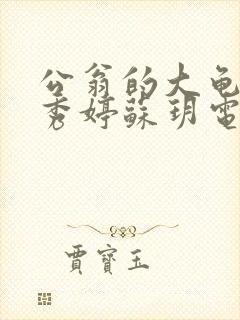 公翁的大龟
秀婷蘇玥電
賈寶玉